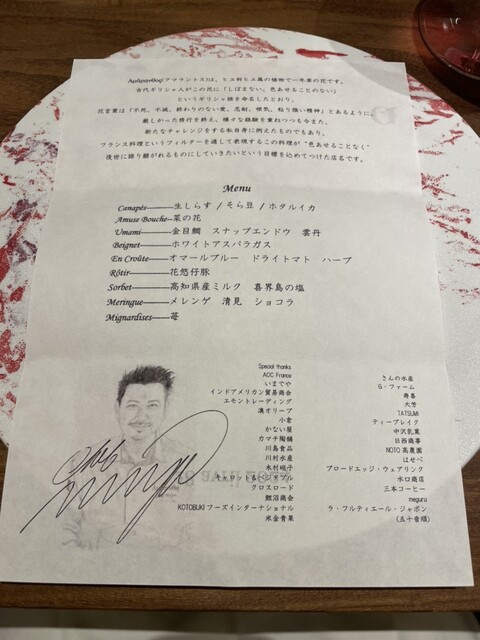 Αμάρανθος(アマラントス)は、ヒユ科ヒユ属の植物で一年草の花です。
古代ギリシャ人がこの花に「しぼまない、色あせることのない」
というギリシャ語を命名したとおり、
花言葉は「不死、不滅、終わりのない愛、忍耐、喚気、粘り強い精神」とあるように、
厳しかった修行を終え、様々な経験を重ねつつも今また、
新たなチャレンジをする私自身に例えたものでもあり、
フランス料理というフィルターを通して表現するこの料理が“色あせることなく”
後世に語り継がれるものにしていきたいという目標を込めてつけた店名です。
Menu
Canapés———生しらす / そら豆 / ホタルイカ
Amuse Bouche--菜の花
Umami———金目鯛 スナップエンドウ 雲丹
Beignet———ホワイトアスパラガス
En Croûte——オマールブルー ドライトマト ハーブ
Rôtir———花悠仔豚
Sorbet———高知県産ミルク 喜界島の塩
Meringue———メレンゲ 清見 ショコラ
Mignardises—苺
Special thanks
AOC France
いまでや
インドアメリカン貿易商会
エモントレーディング
澳オリーブ
小倉
かない屋
カマチ陶舗
川島食品
川村水産
木村硝子
キャロット&ベジタブル
クロスロード
鮫沼商会
KOTOBUKI フーズインターナショナル
米金青果
さんの水産
G・ファーム
寿喜
大芳
TATSUMI
ティーブレイク
中沢乳業
日西商事
NOTO 高農園
はせべ
ブロードエッジ・ウェアリンク
水口商店
三本コーヒー
meguru
ラ・フルティエール・ジャポン
(五十音順)